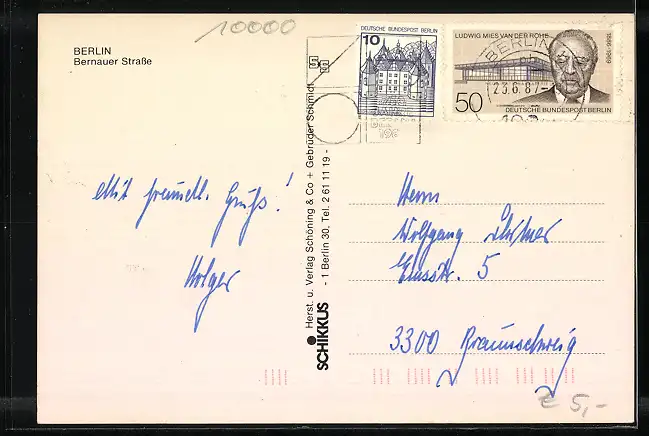 10000
BERLIN
Bernauer Straße
Mit freundl. Gruß!
Holger
Herst. u. Verlag Schöning & Co + Gebrüder Schmidt
- 1 Berlin 30, Tel. 2 61 11 19 -
SCHIKKUS
DEUTSCHE BUNDESPOST BERLIN
10
LUDWIG MIES VAN DER ROHE
1886-1969
50
DEUTSCHE BUNDESPOST BERLIN
BERLIN
23.6.87
Herrn
Wolfgang
5
3300 Braunschweig
€ 5,-